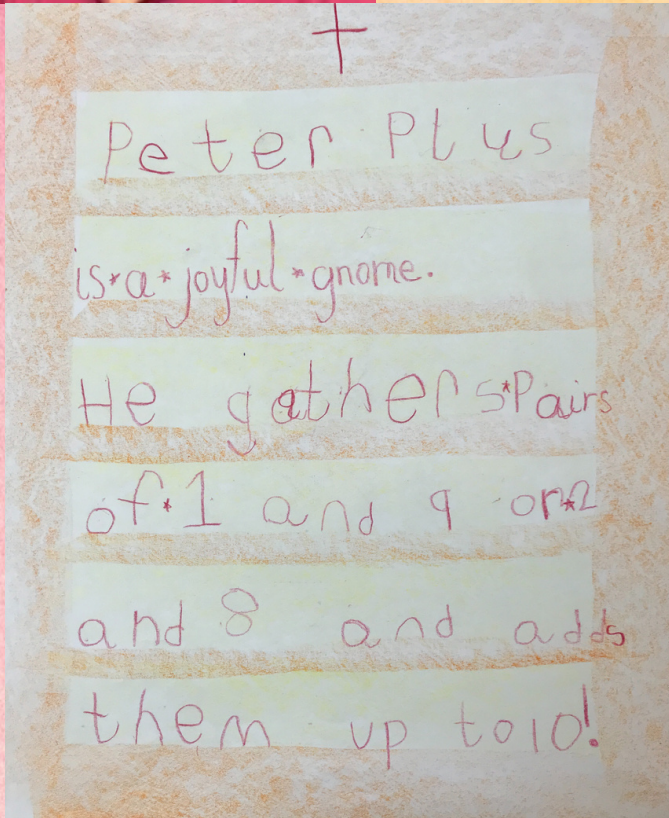 +
Peter Plus
is*a*joyful*gnome.
He gathers*Pairs
of*1 and 9 or*2
and 8 and adds
them up to 10!